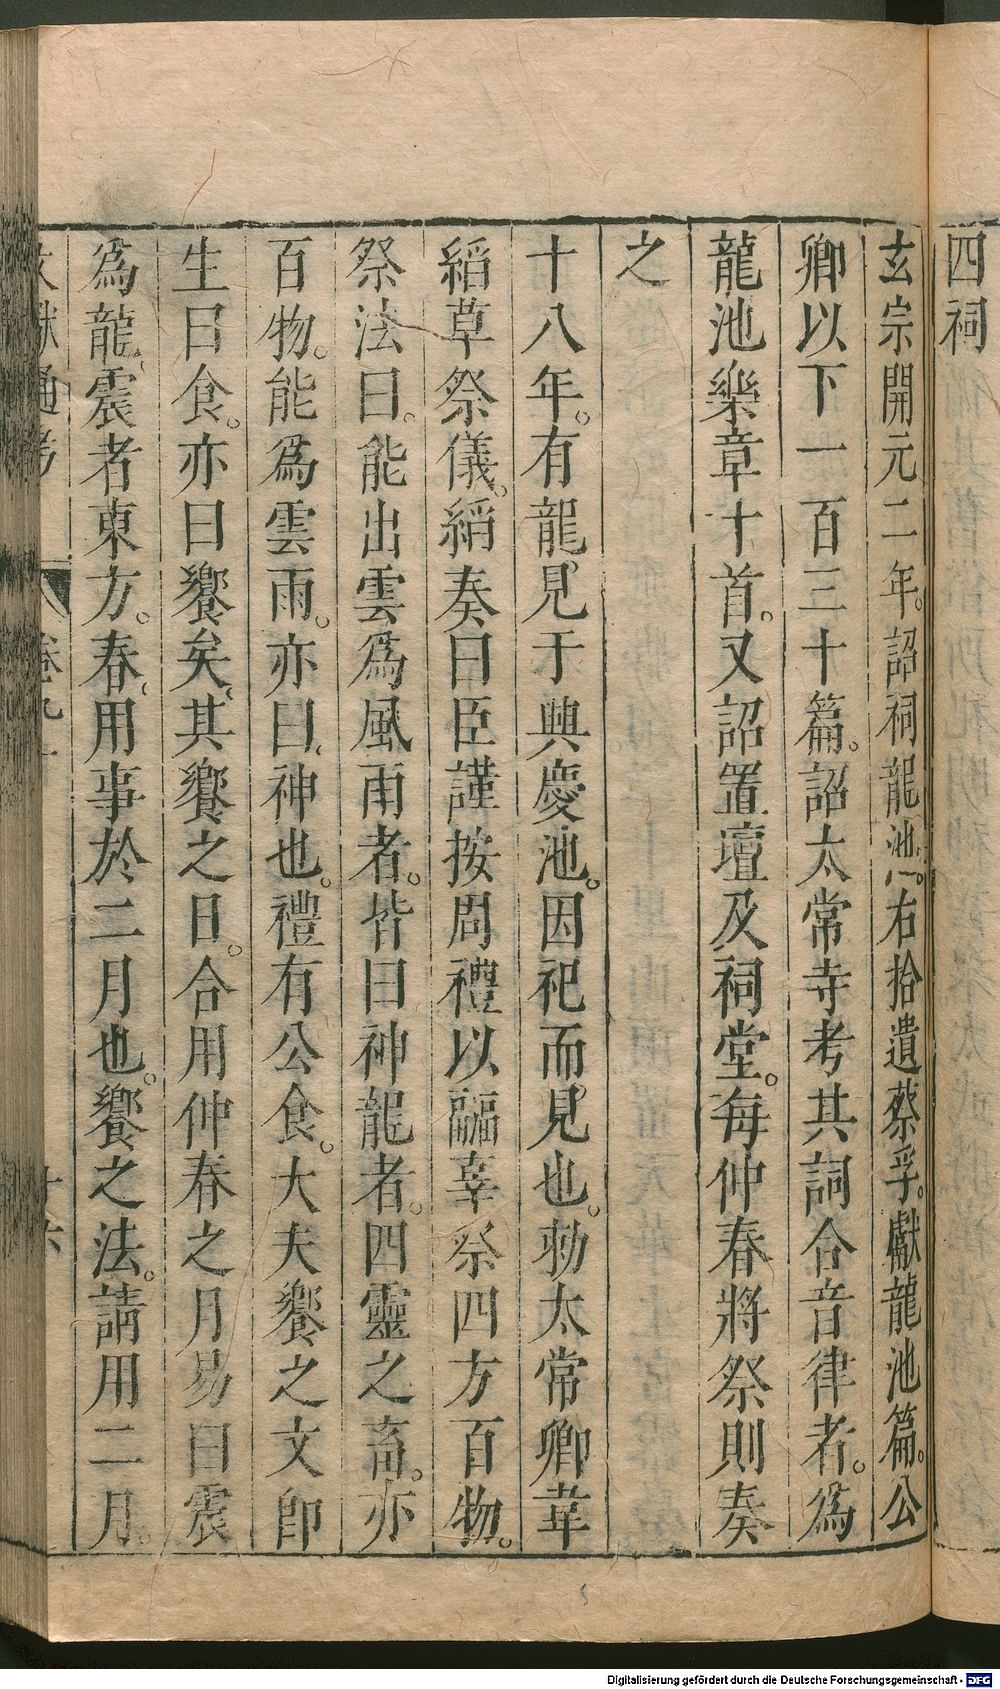 四祠
玄宗開元二年。詔祠龍池。右拾遺蔡孚。獻龍池篇。公
卿以下一百三十篇。詔太常寺考其詞合音律者。爲
龍池樂章十首。又詔置壇及祠堂。每仲春將祭則奏
之
十八年。有龍見于興慶池。因祀而見也。勑太常卿韋
縚草祭儀。縚奏曰臣謹按周禮以疈辜祭四方百物。
祭法曰。能出雲爲風雨者。皆曰神龍者。四靈之畜。亦
百物。能爲雲雨。亦曰神也。禮有公食。大夫饗之文卽
生曰食。亦曰饗矣。其饗之日。合用仲春之月易曰震
爲龍震者東方。春用事於二月也。饗之法。請用二月。
文獻通考 卷九十 十六
Digitalisierung gefördert durch die Deutsche Forschungsgemeinschaft - DFG